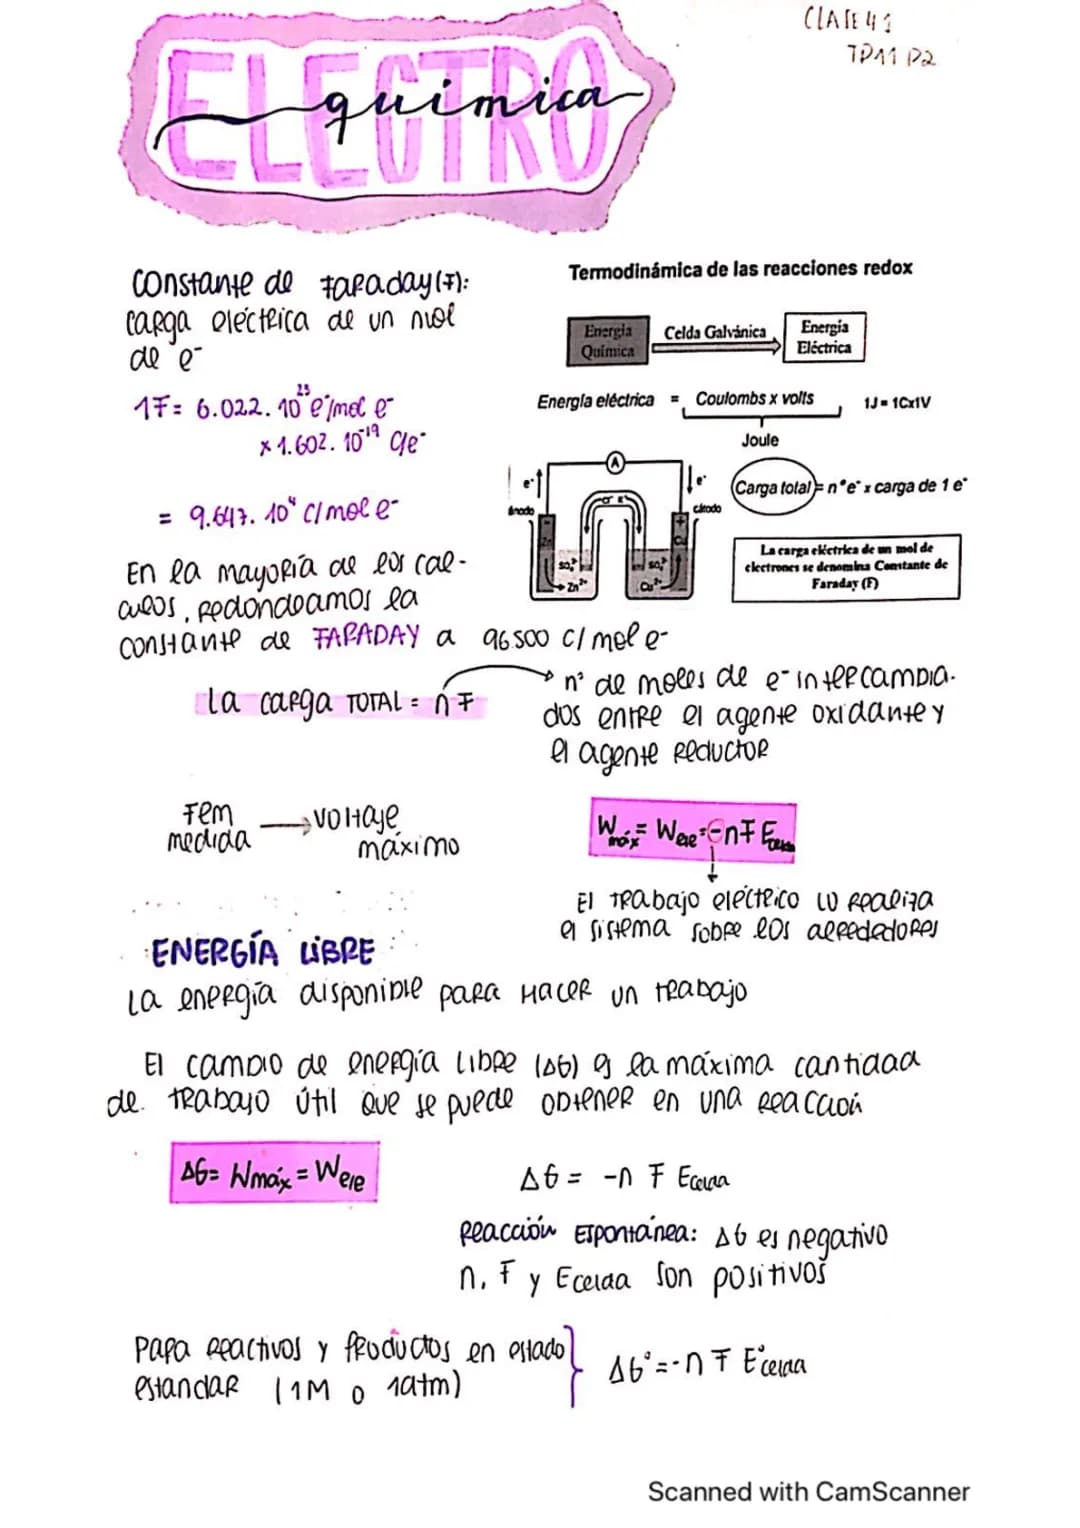 CLASE 41
TP11 P2
ELECTRO
química
Constante de Faraday (F):
carga eléctrica de un mol
de e⁻
1F = 6.022. 10²³ e⁻/mol e⁻
x 1.602. 10⁻¹⁹ C/e⁻
= 9.647. 10⁴ C/mol e⁻
Termodinámica de las reacciones redox
Energía
Química
Celda Galvánica
Energía
Eléctrica
Energía eléctrica = Coulombs x volts
1J = 1Cx1V
Joule
A
e⁻
e⁻
ánodo
cátodo
-
+
Zn
Cu
SO₄²⁻
Zn²⁺
SO₄²⁻
Cu²⁺
Carga total = n°e⁻ x carga de 1 e⁻
La carga eléctrica de un mol de
electrones se denomina Constante de
Faraday (F)
En la mayoría de los cál-
culos, redondeamos la
constante de FARADAY a 96500 C/mol e⁻
La carga TOTAL = n F
n° de moles de e⁻ intercambia-
dos entre el agente oxidante y
el agente reductor
Fem
medida
voltaje
máximo
Wmáx = Wele = -n F Ecelda
El trabajo eléctrico lo realiza
el sistema sobre los alrededores
ENERGÍA LIBRE
La energía disponible para HACER un trabajo
El cambio de energía libre (ΔG) es la máxima cantidad
de trabajo útil que se puede obtener en una reacción
ΔG = Wmáx = Wele
ΔG = -n F Ecelda
Reacción Espontánea: ΔG es negativo
n, F y Ecelda son positivos
Para reactivos y productos en estado
estándar (1M o 1atm)
ΔG° = -n F E°celda
Scanned with CamScanner